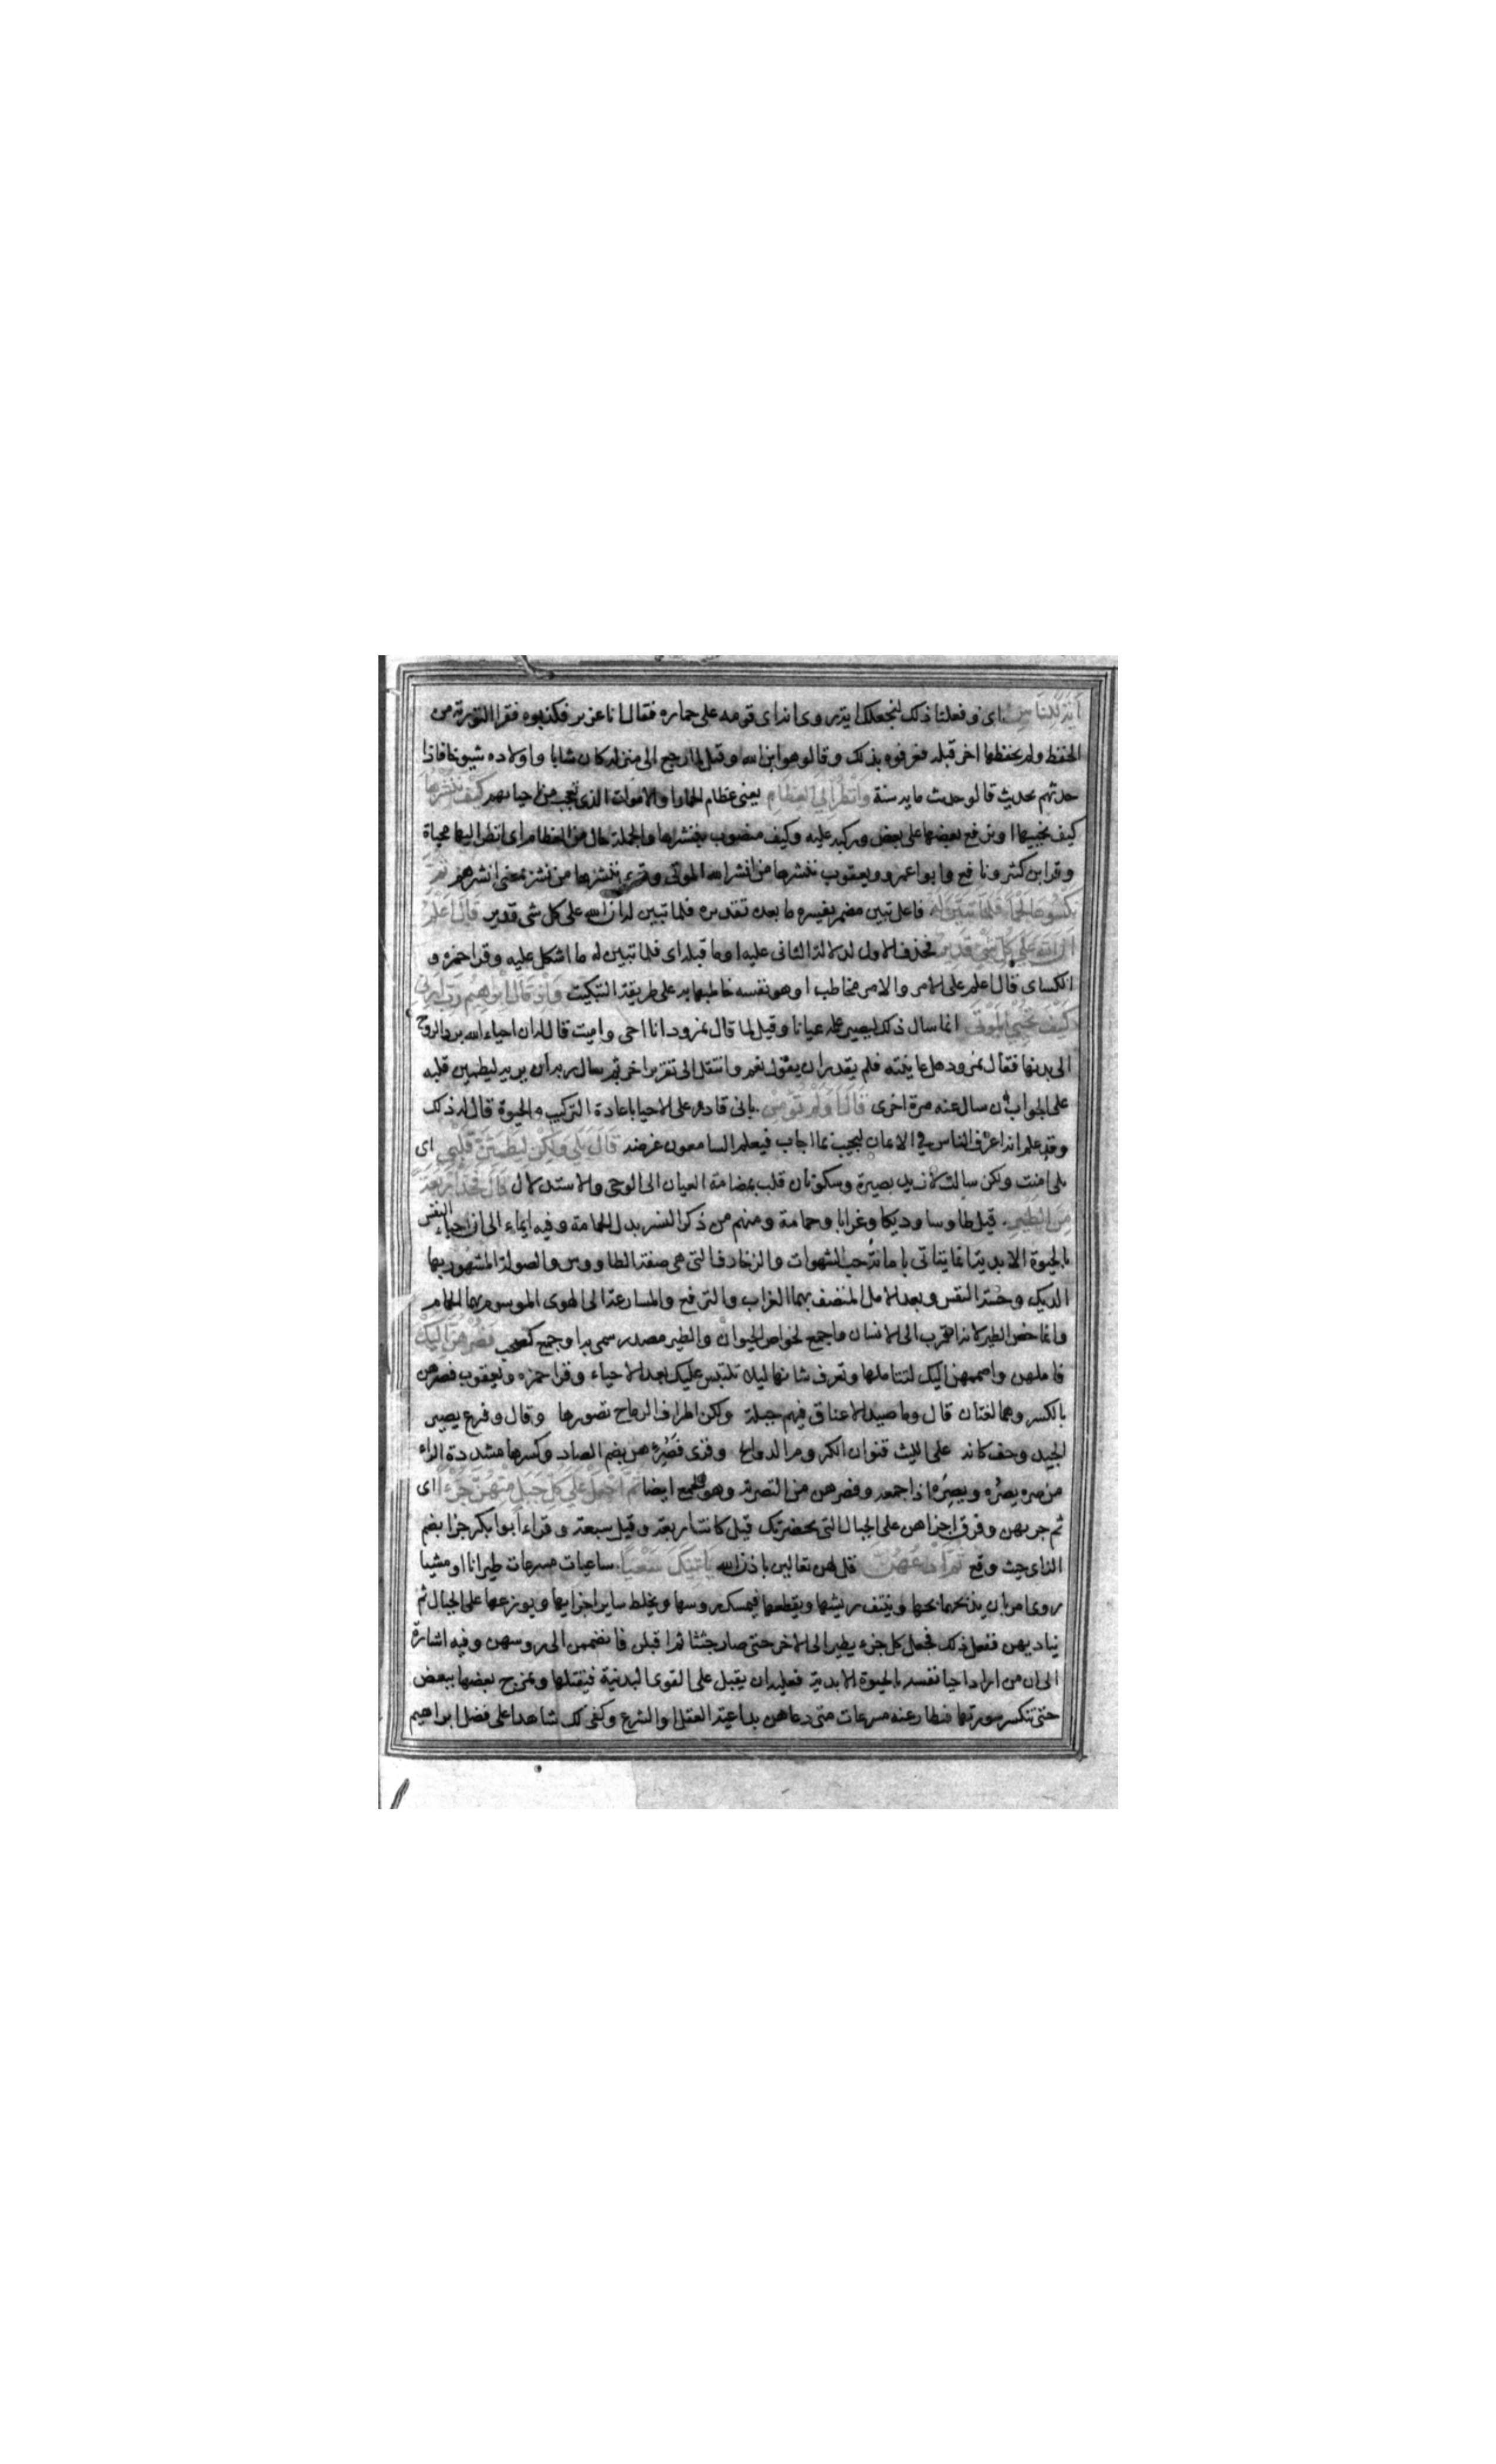 اية للناس اى وفعلنا ذلك لنجعلك اية روى انه اى قومه على حماره فقال انا عزير فكذبوه فقرا التورية من
الحفظ ولم يحفظها احد قبله فعرفوه بذلك وقالوهو ابن الله وقيل لما رجع الى منزله كان شابا واولاده شيوخا فاذا
حدثهم بحديث قالو حديث مايه سنة وانظر الى العظام يعنى عظام الحمار او الاموات الذى تعجب من احياىهم كيف ننشزها
كيف نحييها او نرفع بعضها على بعض ونركبه عليه وكيف منصوب بننشزها والجملة حال من العظام اى انظر اليها محياة
وقرا بن كثير ونافع وابو اعمرو ويعقوب ننشرها من انشر الله الموتى وقرى ننشزها من نشز بمعنى انشزهم ثم
نكسوها لحما فلما تبين له فاعل تبين مضمر يفسره ما بعده تقديره فلما تبين له ان الله على كل شى قدير قال اعلم
ان الله على كل شى قدير فحذف الاول لدلالة الثانى عليه او ما قبله اى فلما تبين له ما اشكل عليه وقرا حمزه و
الكساى قال اعلم على الامر والامر مخاطب اوهو نفسه خاطبها به على طريقة التبكيت واذ قال ابراهيم رب ارنى
كيف تحيى الموتى انما سال ذلك ليصير علمه عيانا وقيل لما قال نمرود انا احى واميت قال له ان احياء الله برد الروح
الى بدنها فقال نمرود هل عاينته فلم يقدر ان يقول نعم وانتقل الى تقرير اخر ثم سال ربه ان يريه ليطمين قلبه
على الجواب ان سال عنه مرة اخرى قال اولم تؤمن بانى قادر على الاحيا باعادة التركيب والحيوة قال له ذلك
وقد علم انه اعرف الناس فى الايمان ليجيب بما اجاب فيعلم السامعون غرضه قال بلى ولكن ليطمئن قلبى اى
بلى امنت ولكن سالت لازيد بصيرة وسكون قلب بمضامة العيان الى الوحى والاستدلال قال فخذ اربعة
من الطير قيل طاوسا وديكا وغرابا وحمامة ومنهم من ذكر النسر بدل الحمامة وفيه ايماء الى ان احياء النفس
بالحيوة الابدية انما يتاتى باماتة حب الشهوات والزخارف التى هى صفة الطاووس والصولة المشهور بها
الديك وخسة النفس وبعد الامل المتصف بهما الغراب والترفع والمسارعة الى الهوى الموسوم بهما الحمام
وانما خص الطير لانه اقرب الى الانسان واجمع لخواص الحيوان والطير مصدر سمى به او جمع كصحب فصرهن اليك
فاملهن واضممهن اليك لتتاملها وتعرف شانها ليلا تلتبس عليك بعد الاحياء وقرا حمزه ويعقوب فصرهن
بالكسر وهما لغتان قال وما صيد الاعناق فيهم جبلة ولكن اطراف الرماح تصورها وقال وفرع يصير
الجيد وحف كانه على الليث قنوان الكروم الدوالح وقرى فصرهن بضم الصاد وكسرها مشددة الراء
من صره يصره ويصره اذا جمعه وفصرهن من التصرية وهو الجمع ايضا ثم اجعل على كل جبل منهن جزءا اى
ثم جزيهن وفرق اجزاهن على الجبال التى بحضرتك قيل كانت اربعة وقيل سبعة وقراء ابوا بكر جزا بضم
الزاى حيث وقع ثم ادعهن قل لهن تعالين باذن الله ياتينك سعيا ساعيات مسرعات طيرانا او مشيا
روى امر بان يذبحها وينتف ريشها ويقطعها فيمسك روسها ويخلط ساير اجزايها ويوزعها على الجبال ثم
يناديهن ففعل ذلك فجعل كل جزء يطير الى الاخر حتى صار جثثا ثم اقبلن فانضممن الى روسهن وفيه اشارة
الى ان من اراد احيا نفسه بالحيوة الابدية فعليه ان يقبل على القوى البدنية فيقتلها ويمزج بعضها ببعض
حتى تنكسر سورتها فتطاوعنه مسرعات متى دعاهن بداعية العقل او الشرع وكفى لك شاهدا على فضل ابراهيم